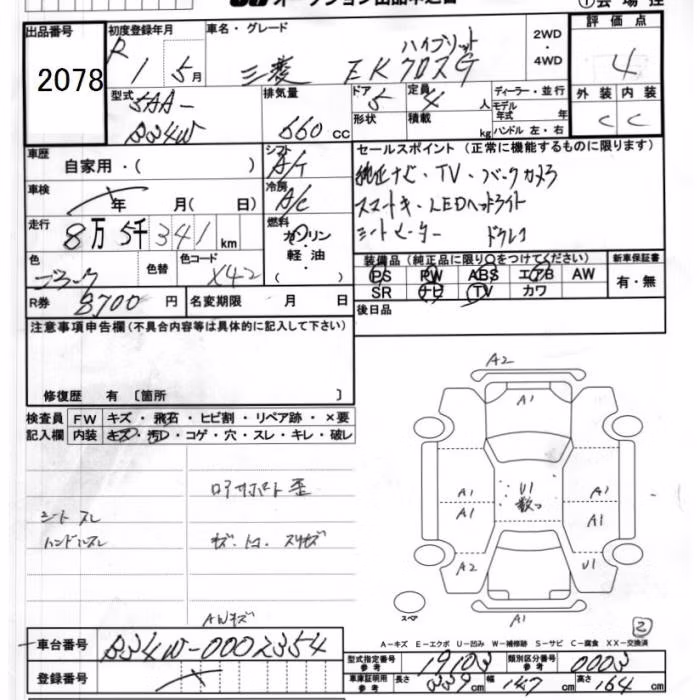 オークション出品申込書
①会場控
出品番号 2078
初度登録年月 R1 5月
車名・グレード 三菱 EKクロスG ハイブリット
2WD・4WD
評価点 4
型式 5AA-B34W
排気量 660 cc
ドア 5
定員 4 人
形状
積載 kg
ディーラー・並行
モデル年式 年
ハンドル 左・右
外装 C
内装 C
車歴 自家用・( )
シフト A/T
車検 年 月( 日)
冷房 A/C
走行 8万5千341km
燃料 ガソリン・軽油・( )
色
色替
色コード X42
R券 8700 円
名変期限 月 日
セールスポイント (正常に機能するものに限ります)
純正ナビ・TV・バックカメラ
スマートキー・LEDヘッドライト
シートヒーター ドラレコ
装備品(純正品に限り○をつけてください)
PS PW ABS エアB AW
SR ナビ TV カワ
新車保証書 有・無
後日品
注意事項申告欄(不具合内容等は具体的に記入して下さい)
修復歴 有〔箇所 〕
検査員記入欄
FW キズ・飛石・ヒビ割・リペア跡・×要
内装 キズ・汚レ・コゲ・穴・スレ・キレ・破レ
ロアサポート歪
シートスレ
ハンドルスレ
キズ・トコ・スリキズ
AWキズ
A2
A1
U1 数ヶ
A1
A1
A1
A1
A2
U1
A1
スペア
②
A-キズ E-エクボ U-凹み W-補修跡 S-サビ C-腐食 XX-交換済
車台番号 B34W-0002354
登録番号
型式指定番号 参考 19103
類別区分番号 参考 0003
車庫証明用 参考 長さ 339 cm 幅 147 cm 高さ 164 cm